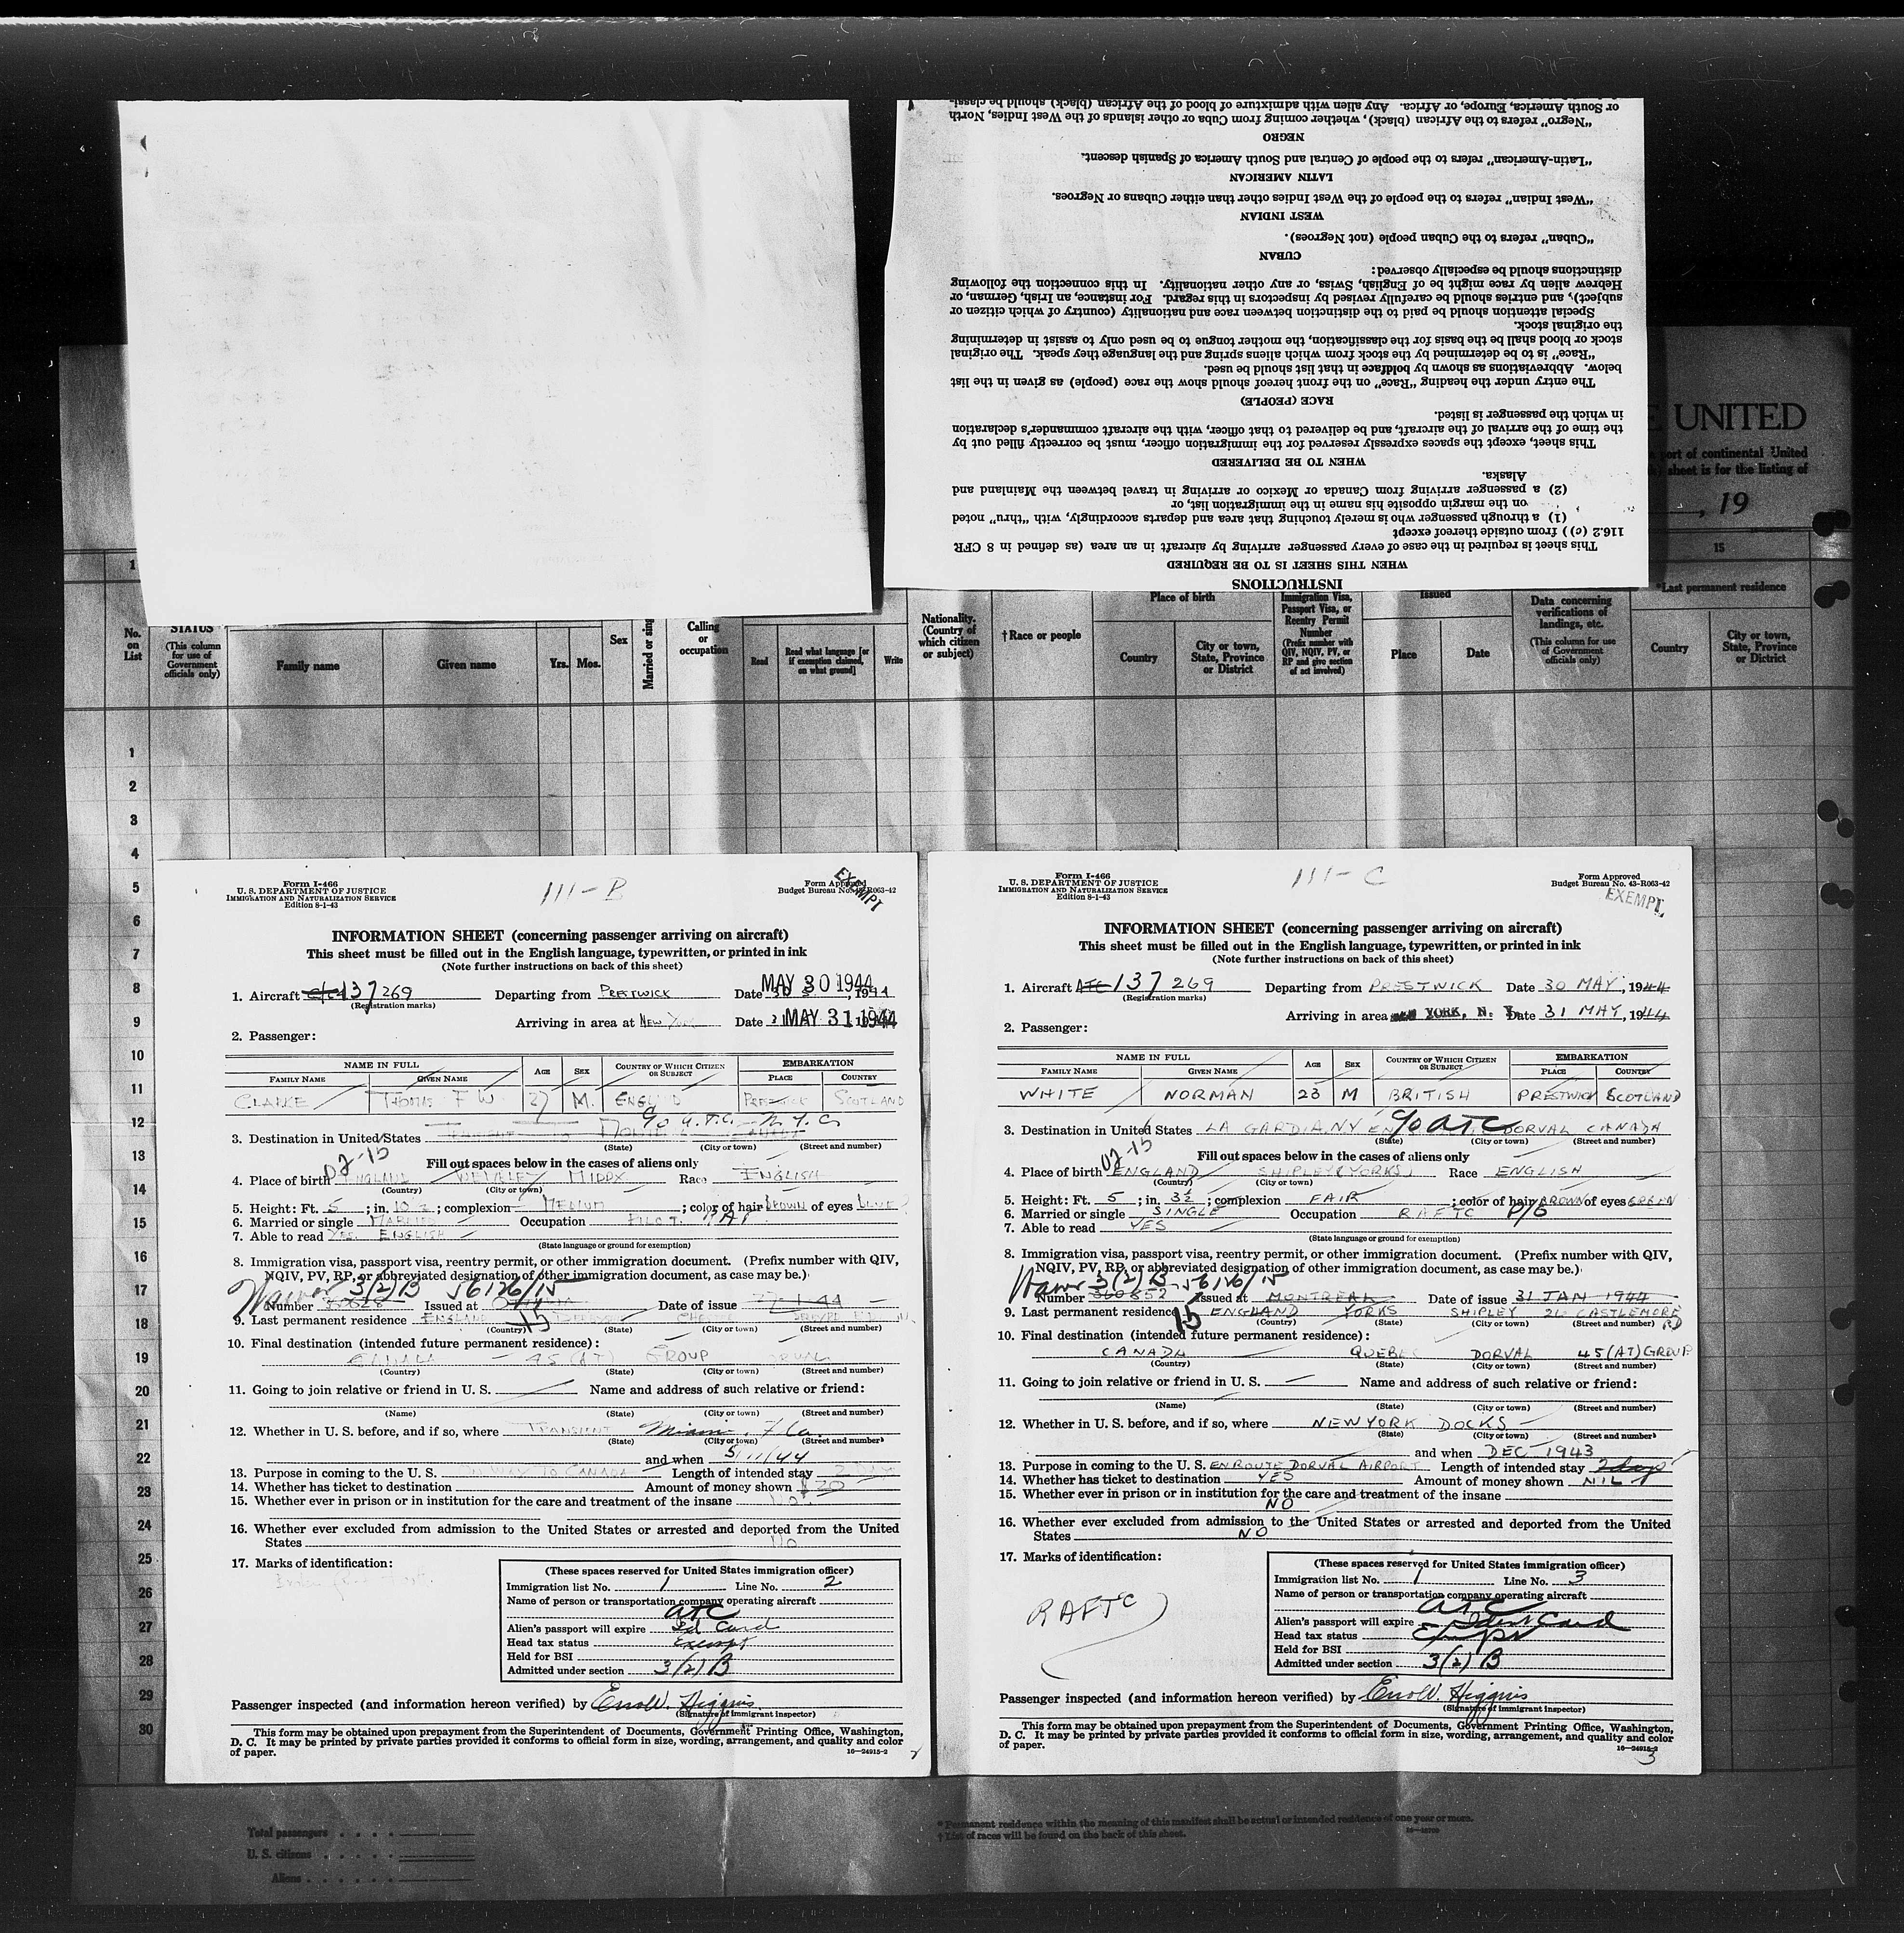 or South America, Europe, or Africa. Any alien with admixture of blood of the African (black) should be classi-
"Negro" refers to the African (black), whether coming from Cuba or other islands of the West Indies, North
NEGRO
"Latin-American" refers to the people of Central and South America of Spanish descent.
LATIN AMERICAN
"West Indian" refers to the people of the West Indies other than either Cubans or Negroes.
WEST INDIAN
"Cuban" refers to the Cuban people (not Negroes).
CUBAN
distinctions should be especially observed:
Hebrew alien by race might be of English, Swiss, or any other nationality. In this connection the following
subject), and entries should be carefully revised by inspectors in this regard. For instance, an Irish, German, or
Special attention should be paid to the distinction between race and nationality (country of which citizen or
the original stock.
stock or blood shall be the basis for the classification, the mother tongue to be used only to assist in determining
"Race" is to be determined by the stock from which aliens spring and the language they speak. The original
below. Abbreviations as shown by boldface in that list should be used.
The entry under the heading "Race" on the front hereof should show the race (people) as given in the list
RACE (PEOPLE)
in which the passenger is listed.
the time of the arrival of the aircraft, and be delivered to that officer, with the aircraft commander's declaration
This sheet, except the spaces expressly reserved for the immigration officer, must be correctly filled out by
WHEN TO BE DELIVERED
Alaska.
(2) a passenger arriving from Canada or Mexico or arriving in travel between the Mainland and
on the margin opposite his name in the immigration list, or
(1) a through passenger who is merely touching that area and departs accordingly, with "thru" noted
116.2 (c)) from outside thereof except
This sheet is required in the case of every passenger arriving by aircraft in an area (as defined in 8 CFR
WHEN THIS SHEET IS TO BE REQUIRED
INSTRUCTIONS
E UNITED
port of continental United
sheet is for the listing of
, 19
1
15
No. on List
STATUS
(This column for use of Government officials only)
Family name
Given name
Yrs.
Mos.
Sex
Married or sing
Calling or occupation
Read
Read what language [or if exemption claimed, on what ground]
Write
Nationality. (Country of which citizen or subject)
†Race or people
Place of birth
Country
City or town, State, Province or District
Immigration Visa, Passport Visa, or Reentry Permit Number
(Prefix number with QIV, NQIV, PV, or RP and give section of act involved)
Issued
Place
Date
Data concerning verifications of landings, etc.
(This column for use of Government officials only)
*Last permanent residence
Country
City or town, State, Province or District
1
2
3
4
5
6
7
8
9
10
11
12
13
14
15
16
17
18
19
20
21
22
23
24
25
26
27
28
29
30
Form I-466
U. S. DEPARTMENT OF JUSTICE
IMMIGRATION AND NATURALIZATION SERVICE
Edition 8-1-43
111-B
Form Approved
Budget Bureau No. 43-R063-42
EXEMPT
INFORMATION SHEET (concerning passenger arriving on aircraft)
This sheet must be filled out in the English language, typewritten, or printed in ink
(Note further instructions on back of this sheet)
1. Aircraft 137269 Departing from PRESTWICK Date MAY 30 1944
(Registration marks)
Arriving in area at NEW YORK Date MAY 31 1944
2. Passenger:
NAME IN FULL
FAMILY NAME GIVEN NAME AGE SEX COUNTRY OF WHICH CITIZEN OR SUBJECT EMBARKATION PLACE COUNTRY
CLARKE THOMAS F W. 27 M. ENGLAND PRESTWICK SCOTLAND
3. Destination in United States % A.T.C. N.Y.C.
(State) (City or town) (Street and number)
07-15
Fill out spaces below in the cases of aliens only
4. Place of birth ENGLAND WEMBLEY MIDDX Race ENGLISH
(Country) (City or town)
5. Height: Ft. 5; in. 10½; complexion MEDIUM; color of hair BROWN of eyes BLUE
6. Married or single MARRIED Occupation PILOT RAF
7. Able to read YES ENGLISH
(State language or ground for exemption)
8. Immigration visa, passport visa, reentry permit, or other immigration document. (Prefix number with QIV,
NQIV, PV, RP, or abbreviated designation of other immigration document, as case may be.)
Waiver 3(2)B 56126/15
Number Issued at OTTAWA Date of issue 27-1-44
9. Last permanent residence ENGLAND
(Country) (State) (City or town) (Street and number)
15
10. Final destination (intended future permanent residence):
CANADA - 45 (AT) GROUP DORVAL
(Country) (State) (City or town) (Street and number)
11. Going to join relative or friend in U. S. Name and address of such relative or friend:
(Name) (State) (City or town) (Street and number)
12. Whether in U. S. before, and if so, where TRANSIENT Miami, Fla.
(State) (City or town) (Street and number)
and when 5/11/44
13. Purpose in coming to the U. S. ON WAY TO CANADA Length of intended stay 2 DAY
14. Whether has ticket to destination Amount of money shown $20
15. Whether ever in prison or in institution for the care and treatment of the insane No.
16. Whether ever excluded from admission to the United States or arrested and deported from the United
States No
17. Marks of identification:
(These spaces reserved for United States immigration officer)
Immigration list No. 1 Line No. 2
Name of person or transportation company operating aircraft
ATC
Alien's passport will expire Id Card
Head tax status Exempt
Held for BSI
Admitted under section 3(2)B
Passenger inspected (and information hereon verified) by Errol W. Higgins
(Signature of immigrant inspector)
This form may be obtained upon prepayment from the Superintendent of Documents, Government Printing Office, Washington,
D. C. It may be printed by private parties provided it conforms to official form in size, wording, arrangement, and quality and color
of paper. 16—24915-2
2
Form I-466
U. S. DEPARTMENT OF JUSTICE
IMMIGRATION AND NATURALIZATION SERVICE
Edition 8-1-43
111-C
Form Approved
Budget Bureau No. 43-R063-42
EXEMPT
INFORMATION SHEET (concerning passenger arriving on aircraft)
This sheet must be filled out in the English language, typewritten, or printed in ink
(Note further instructions on back of this sheet)
1. Aircraft ATC 137269 Departing from PRESTWICK Date 30 MAY, 1944
(Registration marks)
Arriving in area NEW YORK, N. Y. Date 31 MAY, 1944
2. Passenger:
NAME IN FULL
FAMILY NAME GIVEN NAME AGE SEX COUNTRY OF WHICH CITIZEN OR SUBJECT EMBARKATION PLACE COUNTRY
WHITE NORMAN 23 M BRITISH PRESTWICK SCOTLAND
3. Destination in United States LA GARDIA NY EN % ATC DORVAL CANADA
(State) (City or town) (Street and number)
07-15
Fill out spaces below in the cases of aliens only
4. Place of birth ENGLAND SHIPLEY (YORKS) Race ENGLISH
(Country) (City or town)
5. Height: Ft. 5; in. 3½; complexion FAIR; color of hair BROWN of eyes GREEN
6. Married or single SINGLE Occupation RAFTC P/O
7. Able to read YES
(State language or ground for exemption)
8. Immigration visa, passport visa, reentry permit, or other immigration document. (Prefix number with QIV,
NQIV, PV, RP, or abbreviated designation of other immigration document, as case may be.)
Waiver 3(2)B 56126/15
Number Issued at MONTREAL Date of issue 31 JAN 1944
9. Last permanent residence ENGLAND YORKS SHIPLEY 26 CASTLEMORE RD
15 (Country) (State) (City or town) (Street and number)
10. Final destination (intended future permanent residence):
CANADA QUEBEC DORVAL 45(AT)GROUP
(Country) (State) (City or town) (Street and number)
11. Going to join relative or friend in U. S. — Name and address of such relative or friend:
(Name) (State) (City or town) (Street and number)
12. Whether in U. S. before, and if so, where NEW YORK DOCKS
(State) (City or town) (Street and number)
and when DEC 1943
13. Purpose in coming to the U. S. EN ROUTE DORVAL AIRPORT Length of intended stay 2 days
14. Whether has ticket to destination YES Amount of money shown NIL
15. Whether ever in prison or in institution for the care and treatment of the insane
NO
16. Whether ever excluded from admission to the United States or arrested and deported from the United
States NO
17. Marks of identification:
RAFTC
(These spaces reserved for United States immigration officer)
Immigration list No. 1 Line No. 3
Name of person or transportation company operating aircraft
ATC
Alien's passport will expire Ident Card
Head tax status Exempt
Held for BSI
Admitted under section 3(2)B
Passenger inspected (and information hereon verified) by Errol W. Higgins
(Signature of immigrant inspector)
This form may be obtained upon prepayment from the Superintendent of Documents, Government Printing Office, Washington,
D. C. It may be printed by private parties provided it conforms to official form in size, wording, arrangement, and quality and color
of paper. 16—24915-2
3
Total passengers
U. S. citizens
Aliens
* Permanent residence within the meaning of this manifest shall be actual or intended residence of one year or more.
† List of races will be found on the back of this sheet.